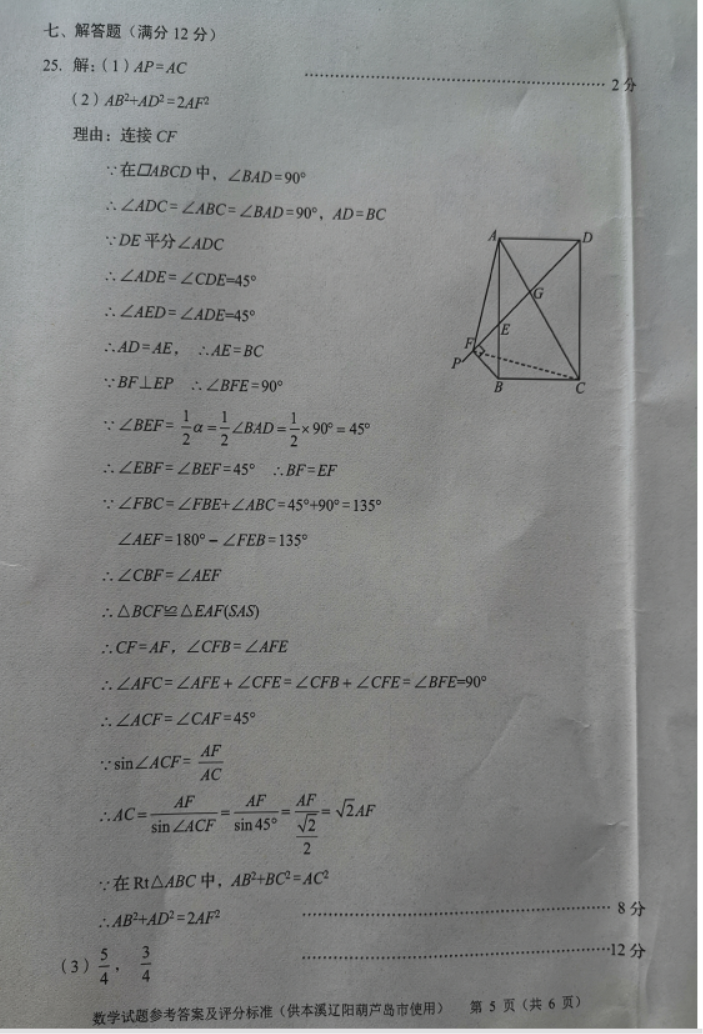 七、解答题（满分12分）
25. 解：（1）AP=AC ………… 2分
（2）AB²+AD²=2AF²
理由：连接CF
∵在□ABCD中，∠BAD=90°
∴∠ADC=∠ABC=∠BAD=90°，AD=BC
∵DE平分∠ADC
∴∠ADE=∠CDE=45°
∴∠AED=∠ADE=45°
∴AD=AE， ∴AE=BC
∵BF⊥EP ∴∠BFE=90°
∵∠BEF=1/2α=1/2∠BAD=1/2×90°=45°
∴∠EBF=∠BEF=45° ∴BF=EF
∵∠FBC=∠FBE+∠ABC=45°+90°=135°
∠AEF=180°−∠FEB=135°
∴∠CBF=∠AEF
∴△BCF≌△EAF(SAS)
∴CF=AF，∠CFB=∠AFE
∴∠AFC=∠AFE+∠CFE=∠CFB+∠CFE=∠BFE=90°
∴∠ACF=∠CAF=45°
∵sin∠ACF=AF/AC
∴AC=AF/sin∠ACF=AF/sin45°=AF/(√2/2)=√2AF
∵在Rt△ABC中，AB²+BC²=AC²
∴AB²+AD²=2AF² ………… 8分
（3）5/4， 3/4 ………… 12分
A D
G
E
F
P
B C
数学试题参考答案及评分标准（供本溪辽阳葫芦岛市使用） 第5页（共6页）